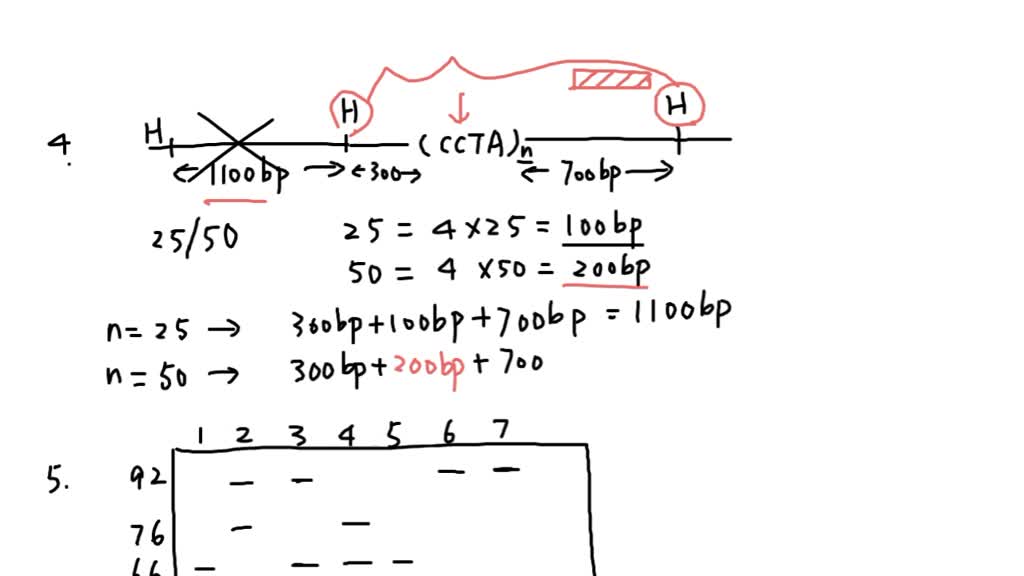 H H H
4. (CCTA)n
1100bp 300 700bp
25/50 25 = 4 × 25 = 100bp
50 = 4 × 50 = 200bp
n = 25 → 300bp + 100bp + 700bp = 1100bp
n = 50 → 300bp + 200bp + 700
1 2 3 4 5 6 7
5. 92
76
66